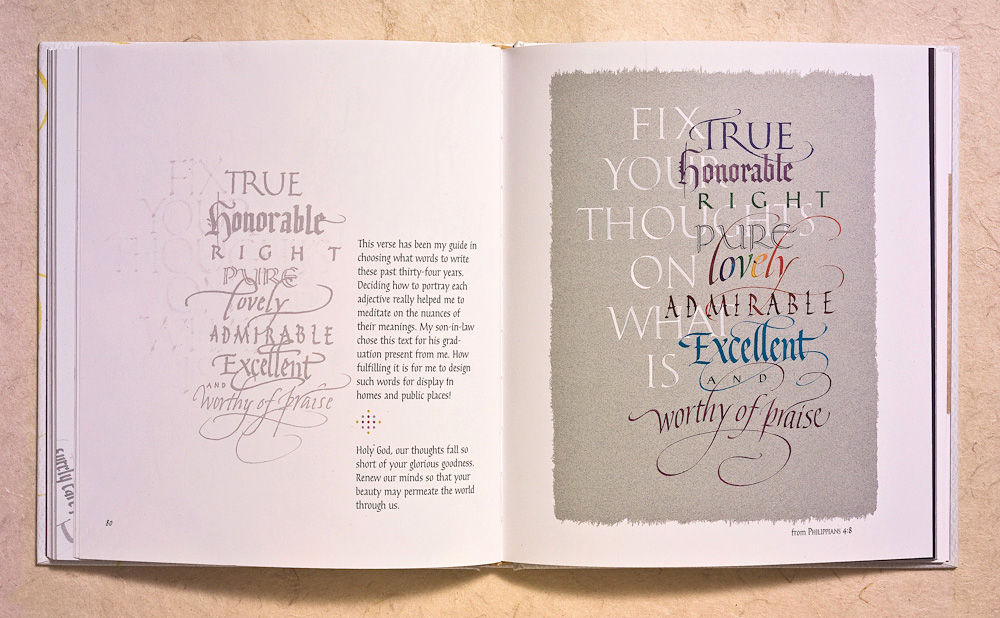 TRUE
Honorable
RIGHT
PURE
lovely
ADMIRABLE
Excellent
AND
worthy of praise
This verse has been my guide in
choosing what words to write
these past thirty-four years.
Deciding how to portray each
adjective really helped me to
meditate on the nuances of
their meanings. My son-in-law
chose this text for his grad-
uation present from me. How
fulfilling it is for me to design
such words for display in
homes and public places!
Holy God, our thoughts fall so
short of your glorious goodness.
Renew our minds so that your
beauty may permeate the world
through us.
80
FIX
YOUR
THOUGHTS
ON
WHAT
IS
TRUE
Honorable
RIGHT
PURE
lovely
ADMIRABLE
Excellent
AND
worthy of praise
from PHILIPPIANS 4:8